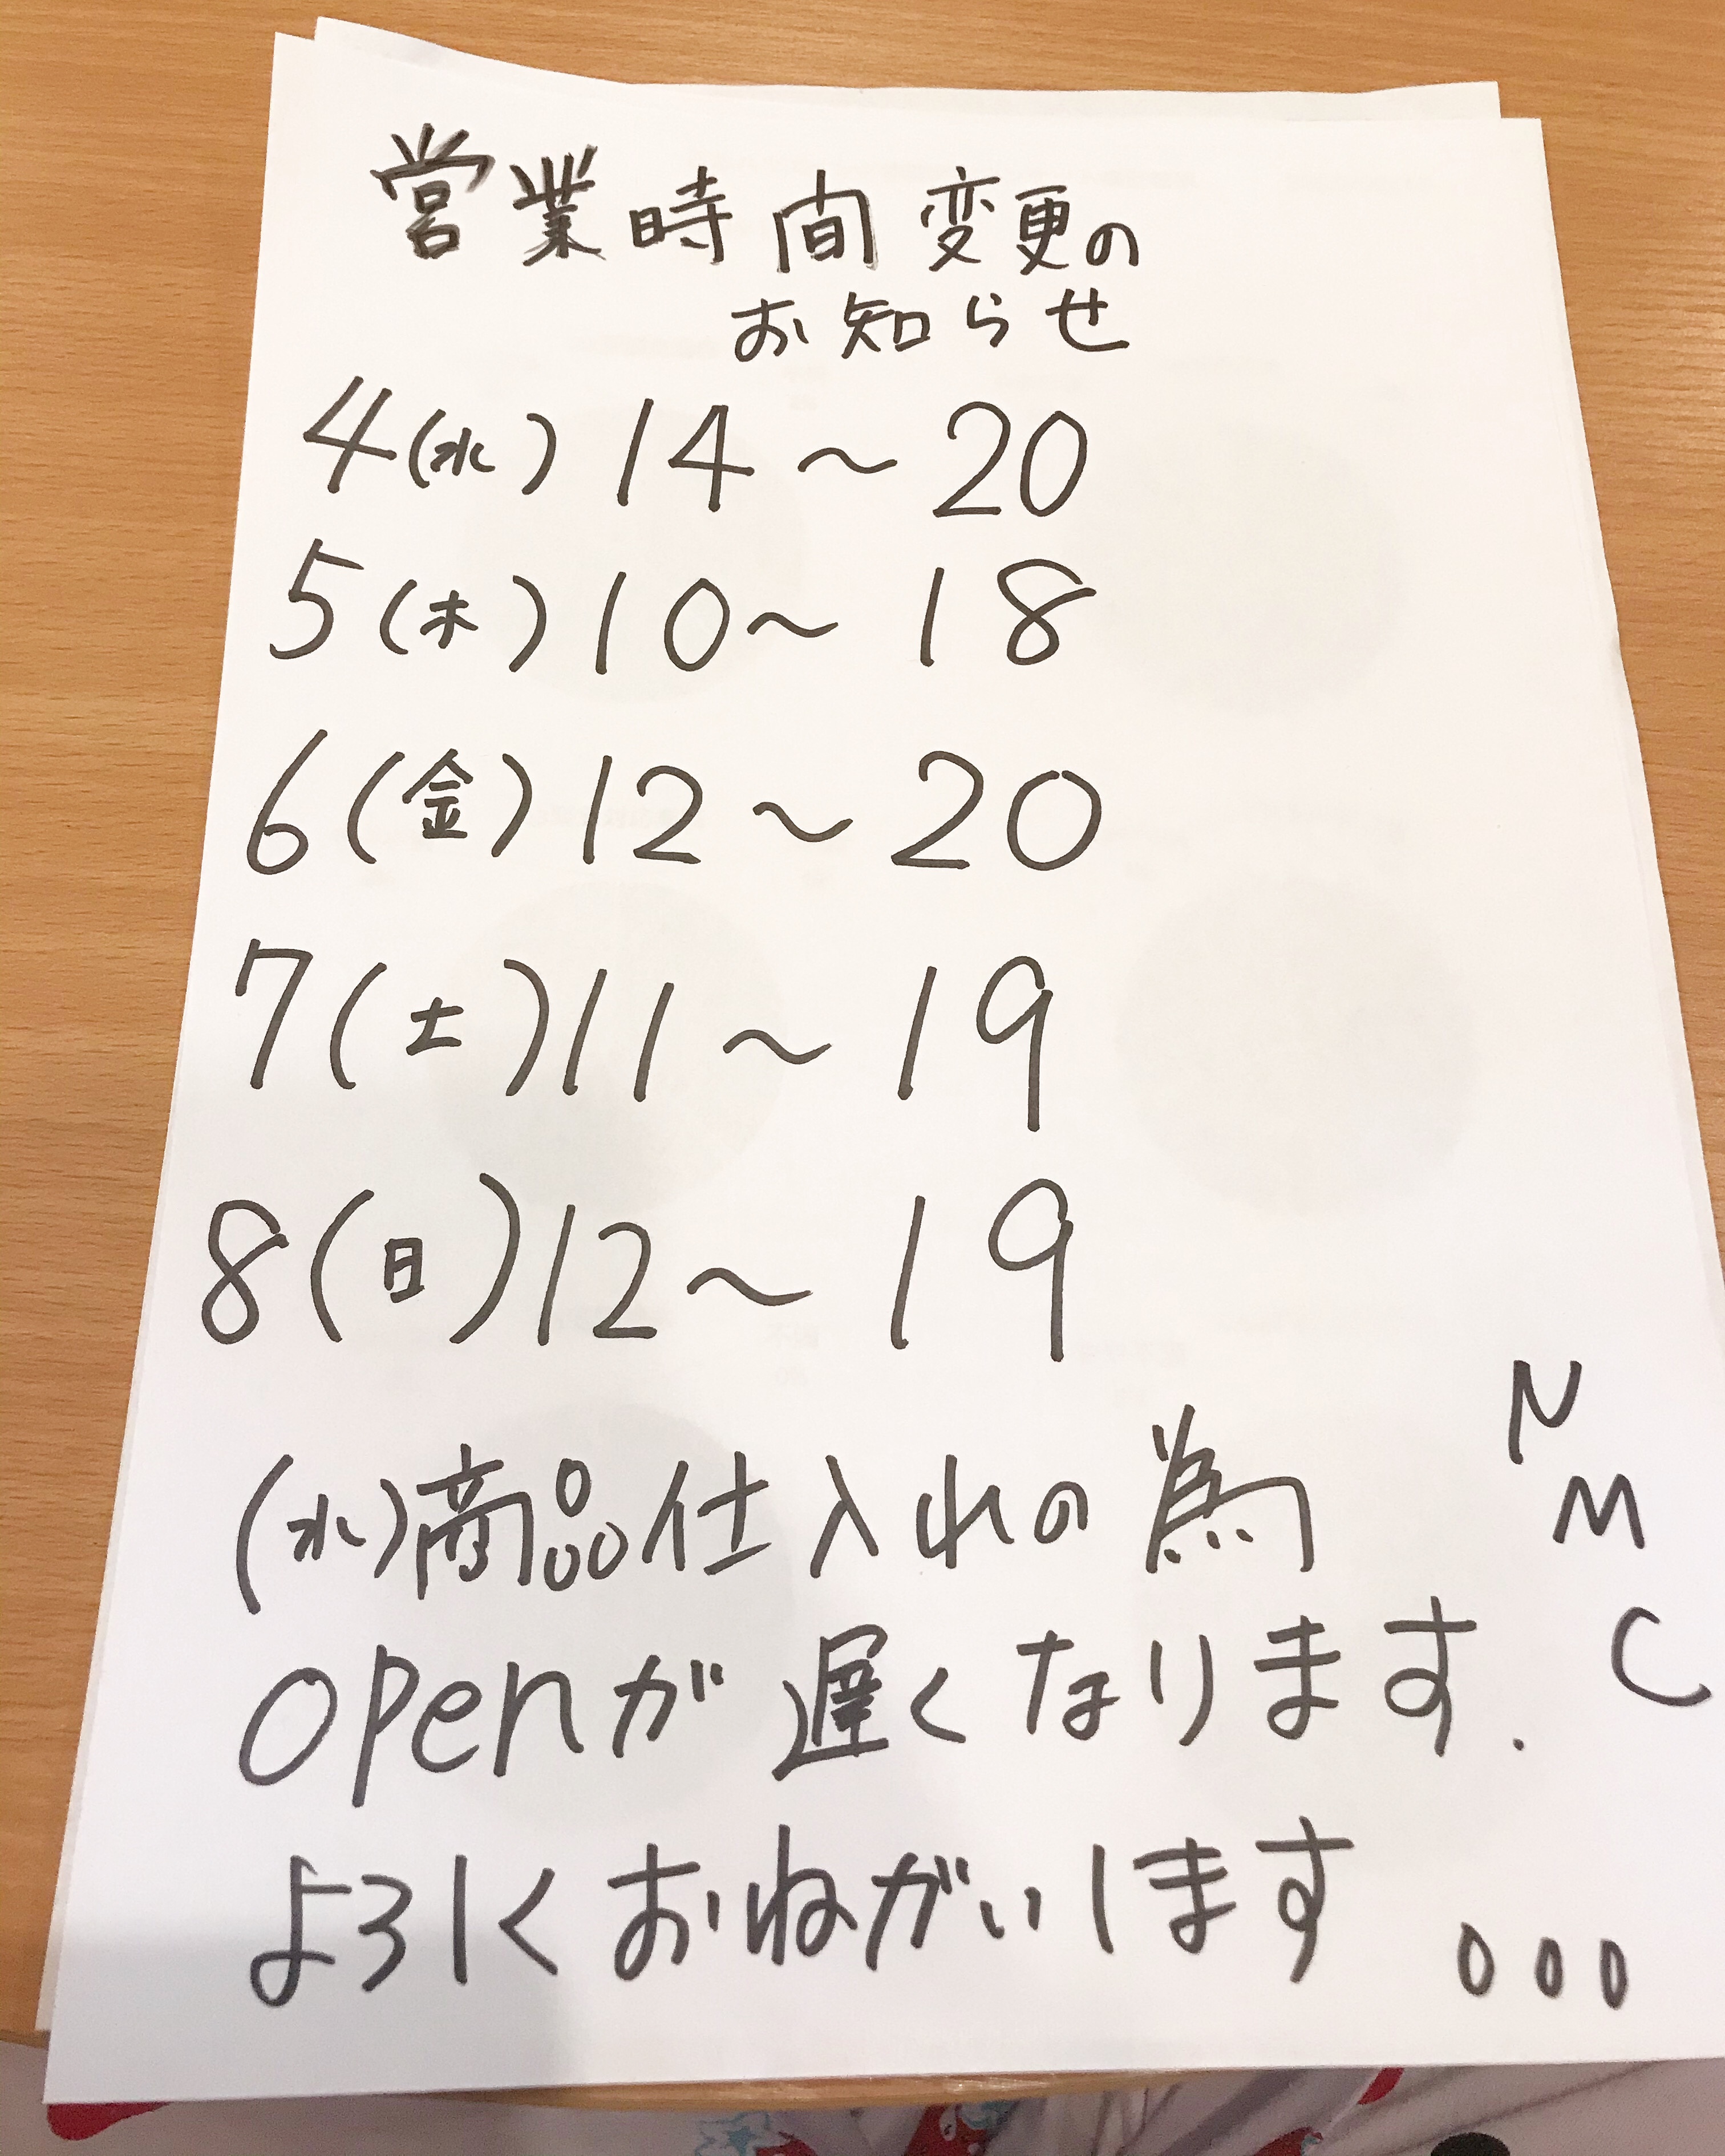 営業時間変更の
お知らせ
4(水) 14～20
5(木) 10～18
6(金) 12～20
7(土) 11～19
8(日) 12～19
(水)商品仕入れの為
openが遅くなります.
よろしくおねがいします。。。
N
M
C